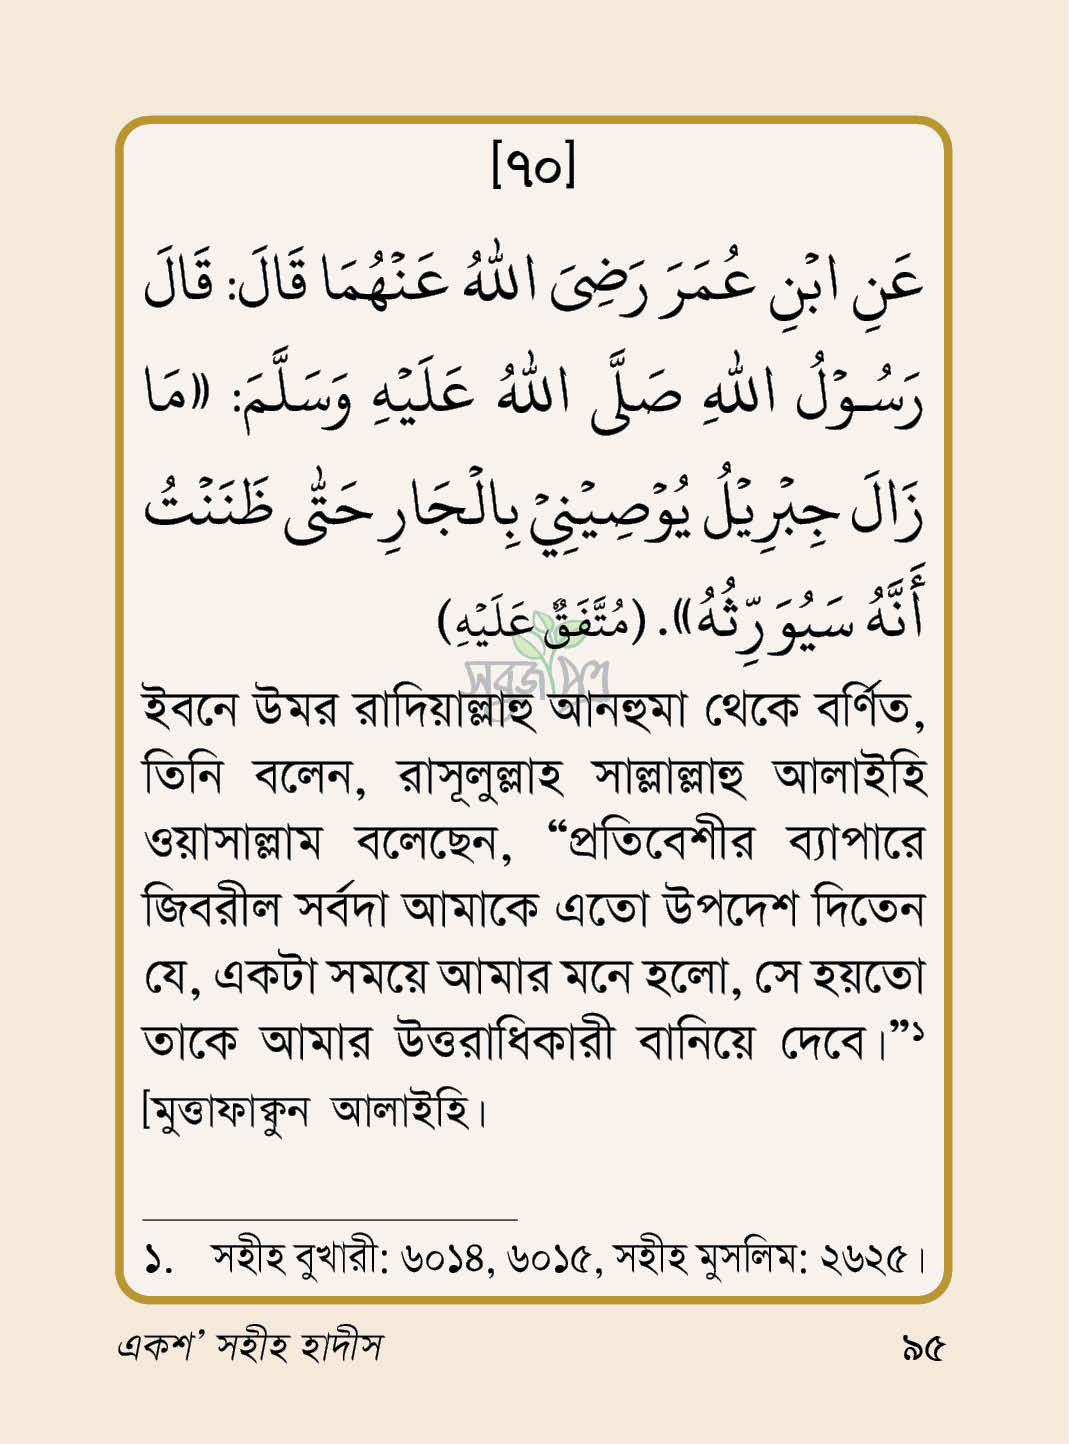 [৭০]
عَنِ ابْنِ عُمَرَ رَضِىَ اللّٰهُ عَنْهُمَا قَالَ: قَالَ
رَسُوْلُ اللّٰهِ صَلَّى اللّٰهُ عَلَيْهِ وَسَلَّمَ: «مَا
زَالَ جِبْرِيْلُ يُوْصِيْنِيْ بِالْجَارِ حَتّٰى ظَنَنْتُ
أَنَّهُ سَيُوَرِّثُهُ». (مُتَّفَقٌ عَلَيْهِ)
সবুজপত্র
ইবনে উমর রাদিয়াল্লাহু আনহুমা থেকে বর্ণিত,
তিনি বলেন, রাসূলুল্লাহ সাল্লাল্লাহু আলাইহি
ওয়াসাল্লাম বলেছেন, “প্রতিবেশীর ব্যাপারে
জিবরীল সর্বদা আমাকে এতো উপদেশ দিতেন
যে, একটা সময়ে আমার মনে হলো, সে হয়তো
তাকে আমার উত্তরাধিকারী বানিয়ে দেবে।”১
[মুত্তাফাক্বুন আলাইহি।
১. সহীহ বুখারী: ৬০১৪, ৬০১৫, সহীহ মুসলিম: ২৬২৫।
একশ’ সহীহ হাদীস ৯৫